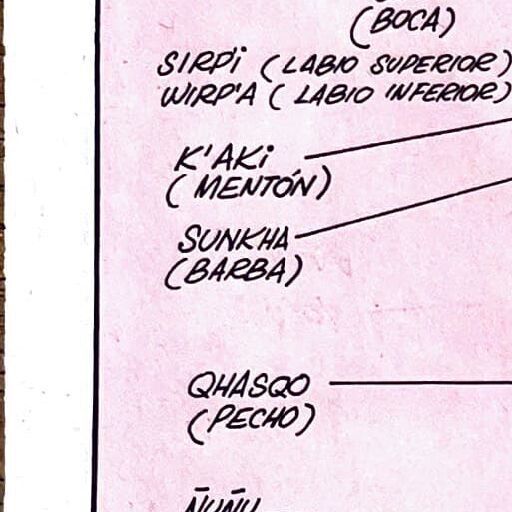 (BOCA)
SIRP'i (LABIO SUPERIOR)
WIRP'A (LABIO INFERIOR)
K'AKi
(MENTÓN)
SUNKHA
(BARBA)
QHASQO
(PECHO)
ÑUÑU